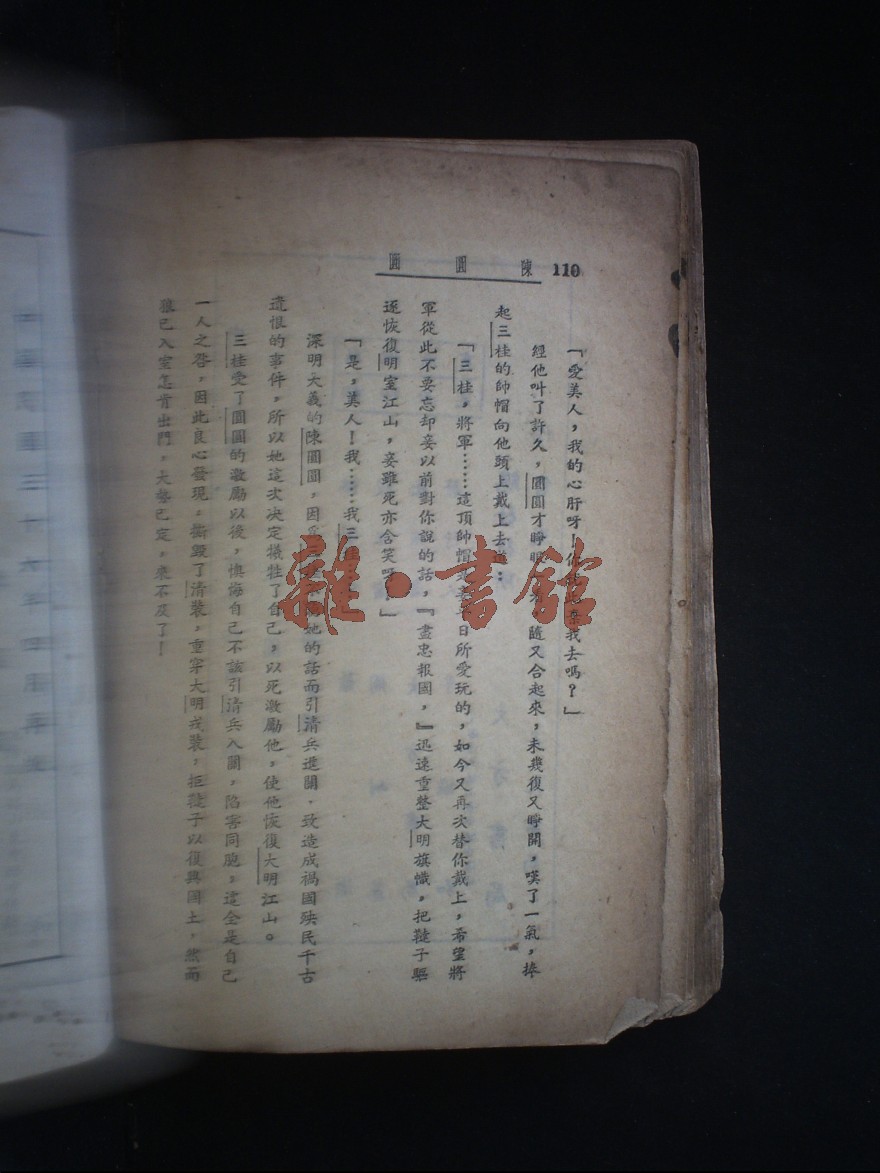 110
陳圓圓
「愛美人，我的心肝呀！你 我去嗎？」
經他叫了許久，圓圓才睜眼 隨又合起來，未幾復又睜開，嘆了一氣，捧
起三桂的帥帽向他頭上戴上去道：
「三桂，將軍……這頂帥帽是妾 日所愛玩的，如今又再次替你戴上，希望將
軍從此不要忘却妾以前對你說的話，『盡忠報國，』迅速重整大明旗幟，把韃子驅
逐恢復明室江山，妾雖死亦含笑呀！」
「是，美人！我……我三
深明大義的陳圓圓，因 她的話而引清兵進關，致造成禍國殃民千古
遺恨的事件，所以她這次決定犧牲了自己，以死激勵他，使他恢復大明江山。
三桂受了圓圓的激勵以後，懊悔自己不該引清兵入關，陷害同胞，這全是自己
一人之咎，因此良心發現，撕毀了清裝，重穿大明戎裝，拒韃子以復興國土，然而
狼已入室怎肯出門，大勢已定，來不及了！
雜·書館